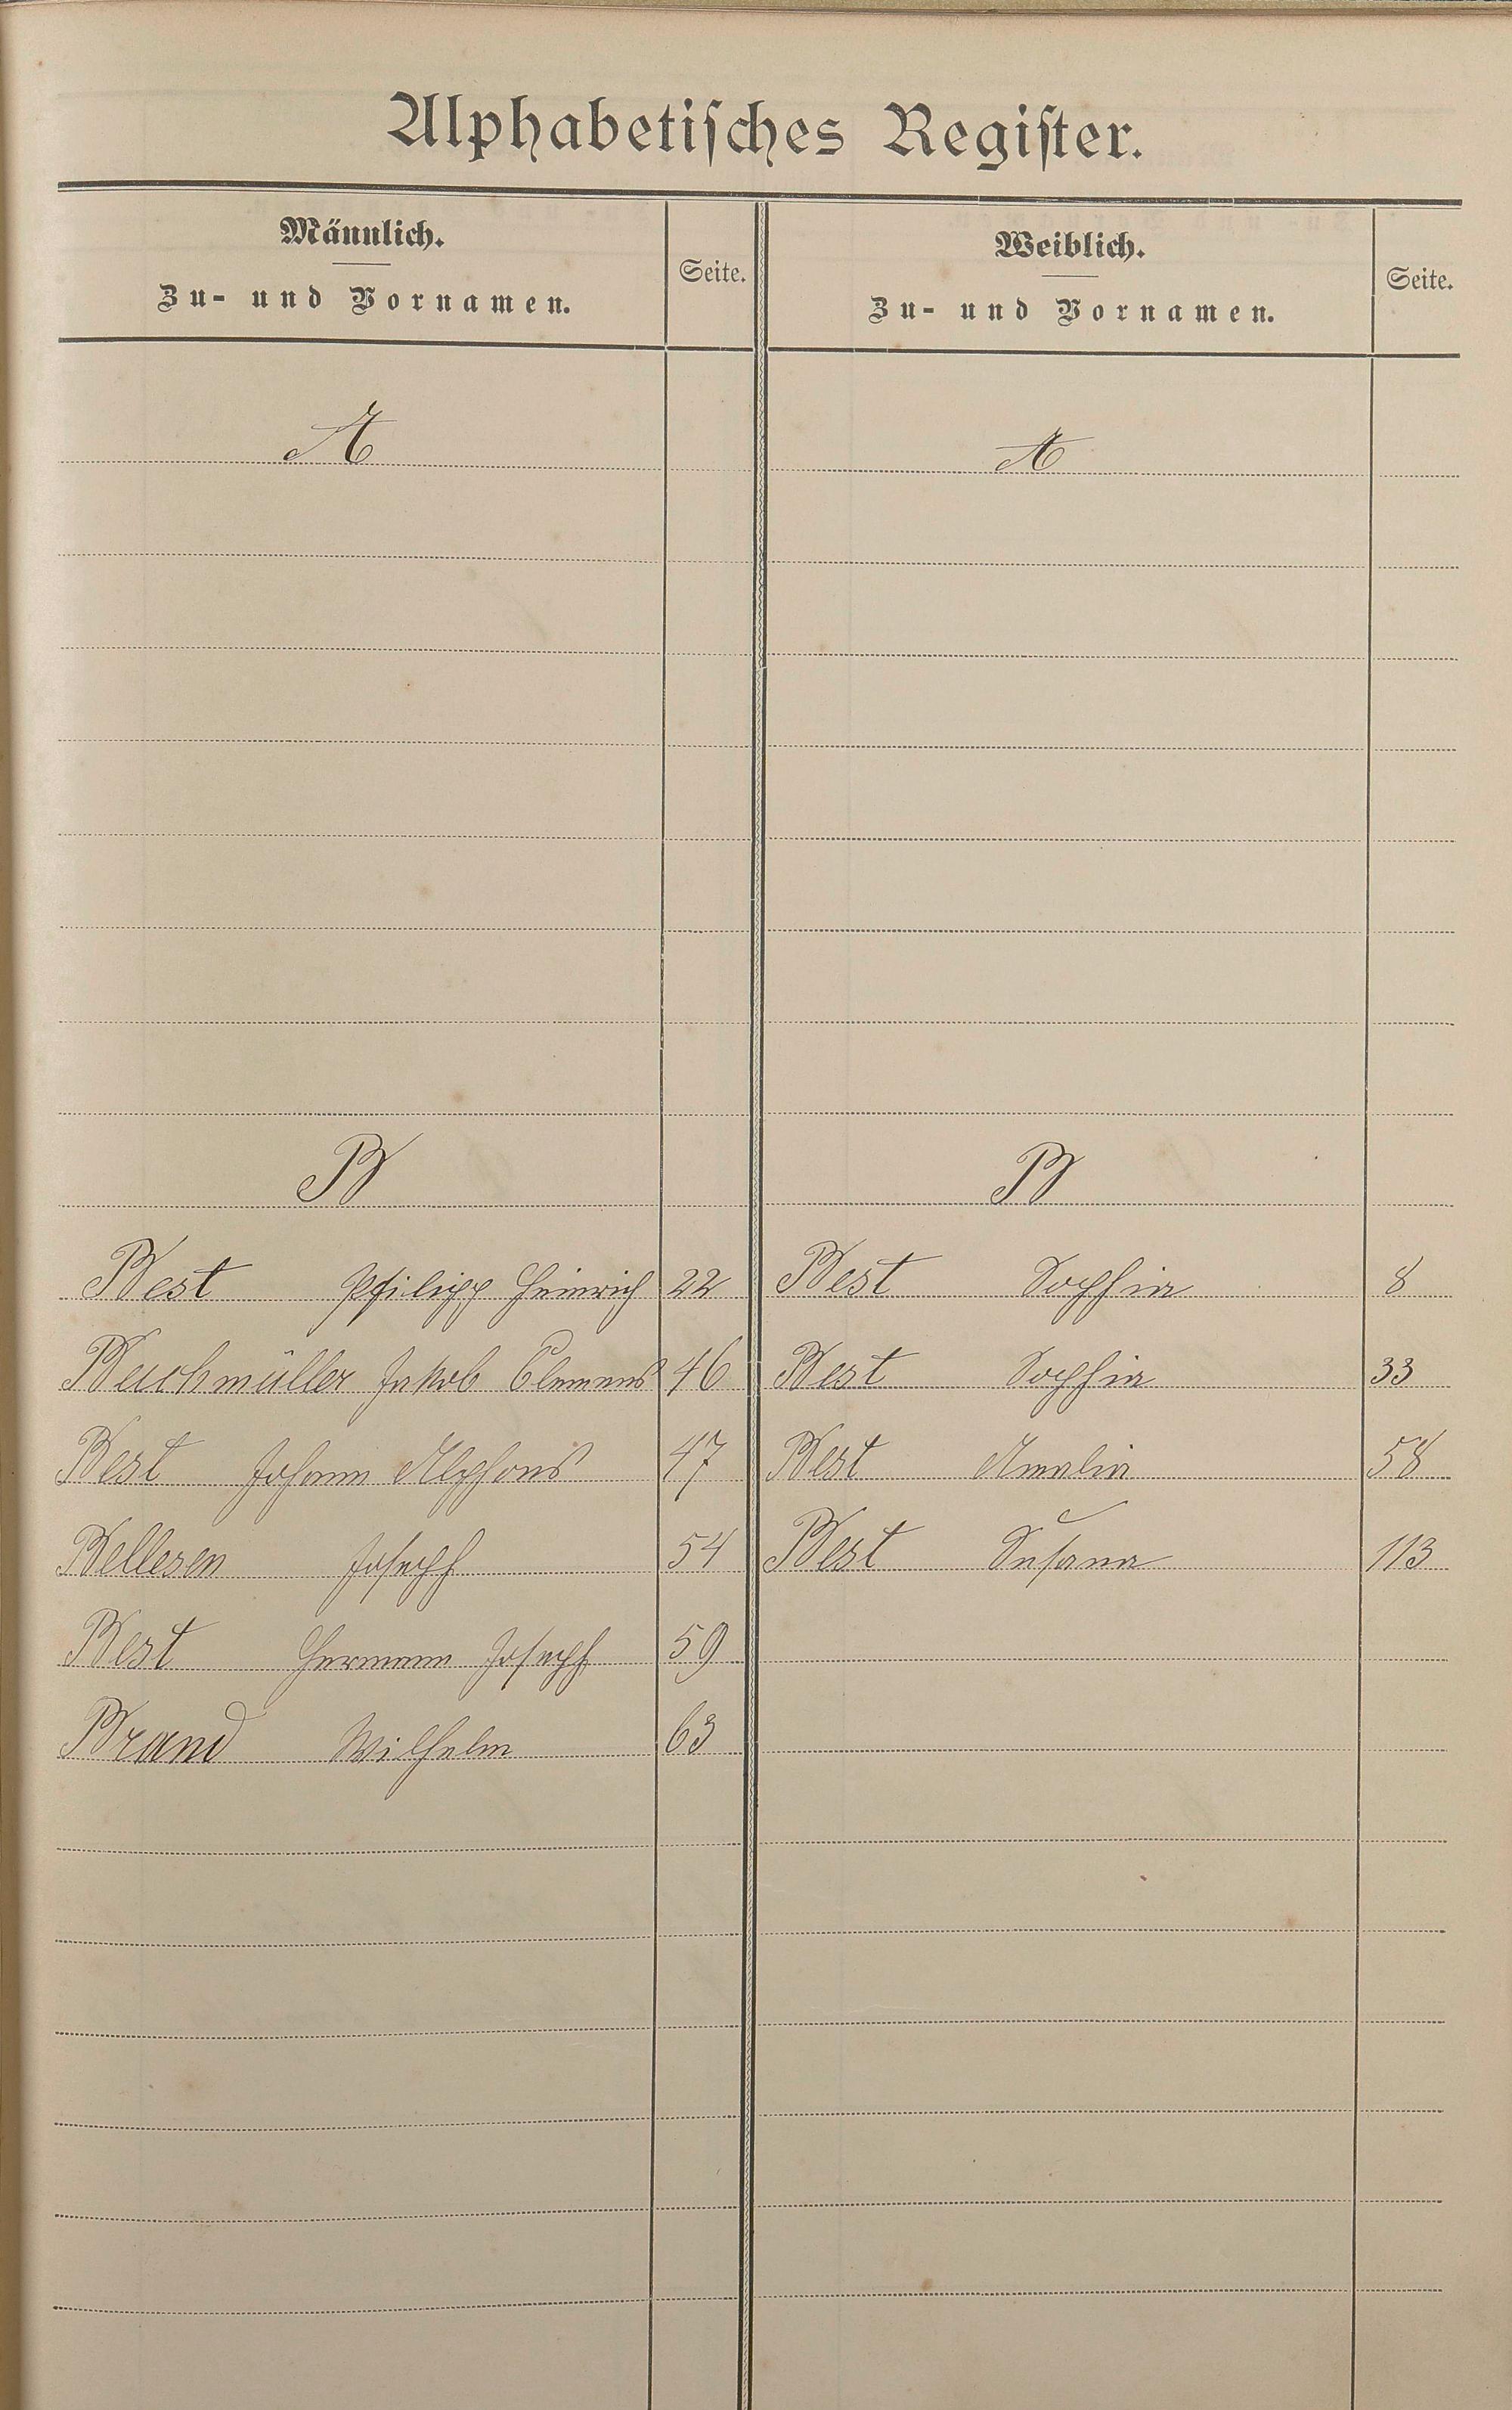 Alphabetisches Register.
Männlich.
Zu- und Vornamen.
Seite.
Weiblich.
Zu- und Vornamen.
Seite.
A
A
B
B
Best Philipp Heinrich 22 Best Sophia 8
Buchmüller Jakob Clemens 46 Best Sophia 33
Best Johann Alphons 47 Best Amalia 58
Bellesen Joseph 54 Best Susana 113
Best Hermann Joseph 59
Brand Wilhelm 63